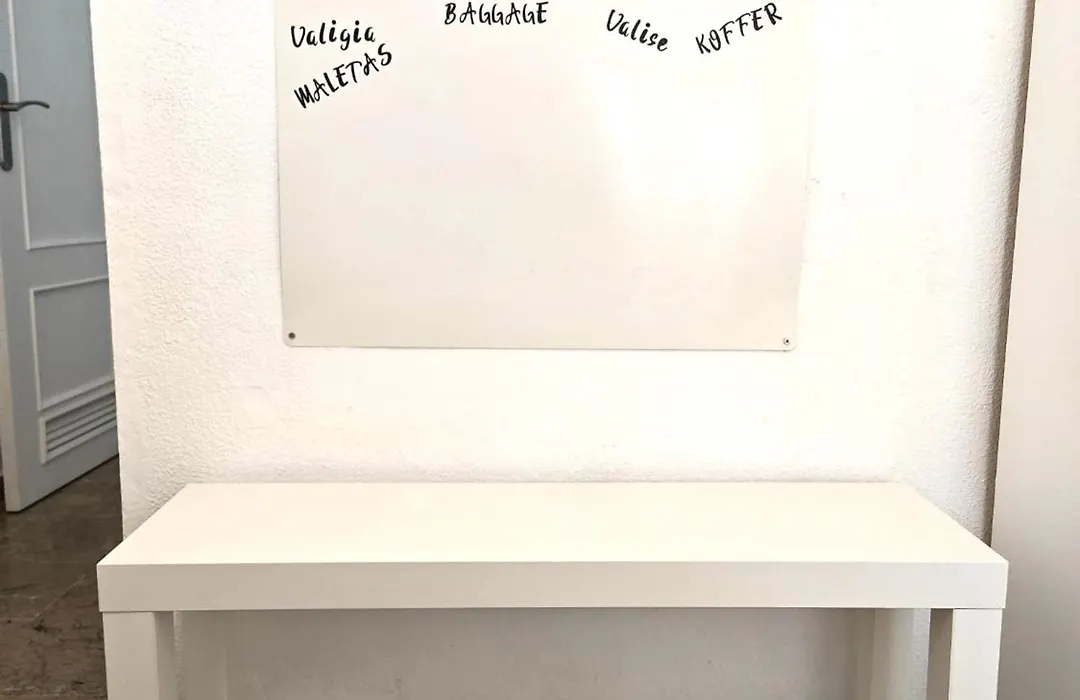 Valigia
MALETAS
BAGGAGE
Valise
KOFFER